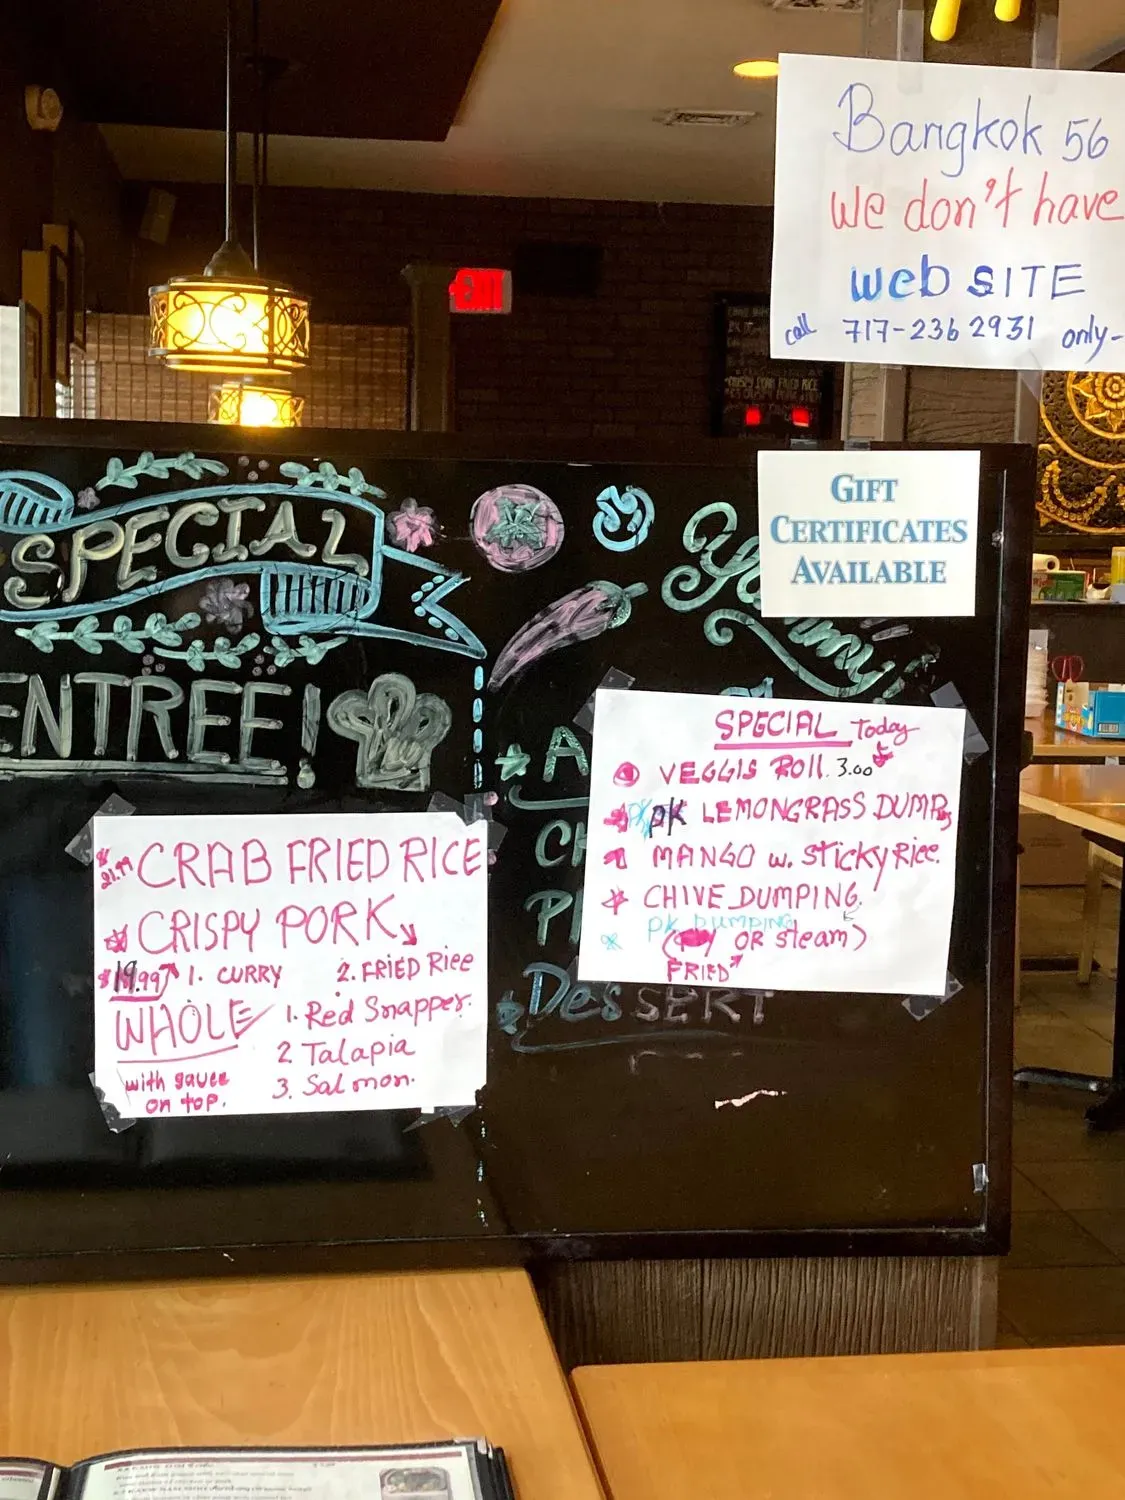 Bangkok 56
we don't have
web SITE
call 717-236 2931 only-
EXIT
CRISPY PORK FRIED RICE
GIFT
CERTIFICATES
AVAILABLE
SPECIAL
ENTREE!
Yummy!
$21.99 CRAB FRIED RICE
CRISPY PORK
$19.99 1. CURRY 2. FRIED Rice
WHOLE 1. Red Snapper.
2 Talapia
with sauce 3. Salmon.
on top.
SPECIAL Today
VEGGIS ROLL. 3.00
PK LEMONGRASS DUMP
MANGO w. Sticky Rice.
CHIVE DUMPING.
PK DUMPING
OR steam)
FRIED
A
CH
P
DesSERT